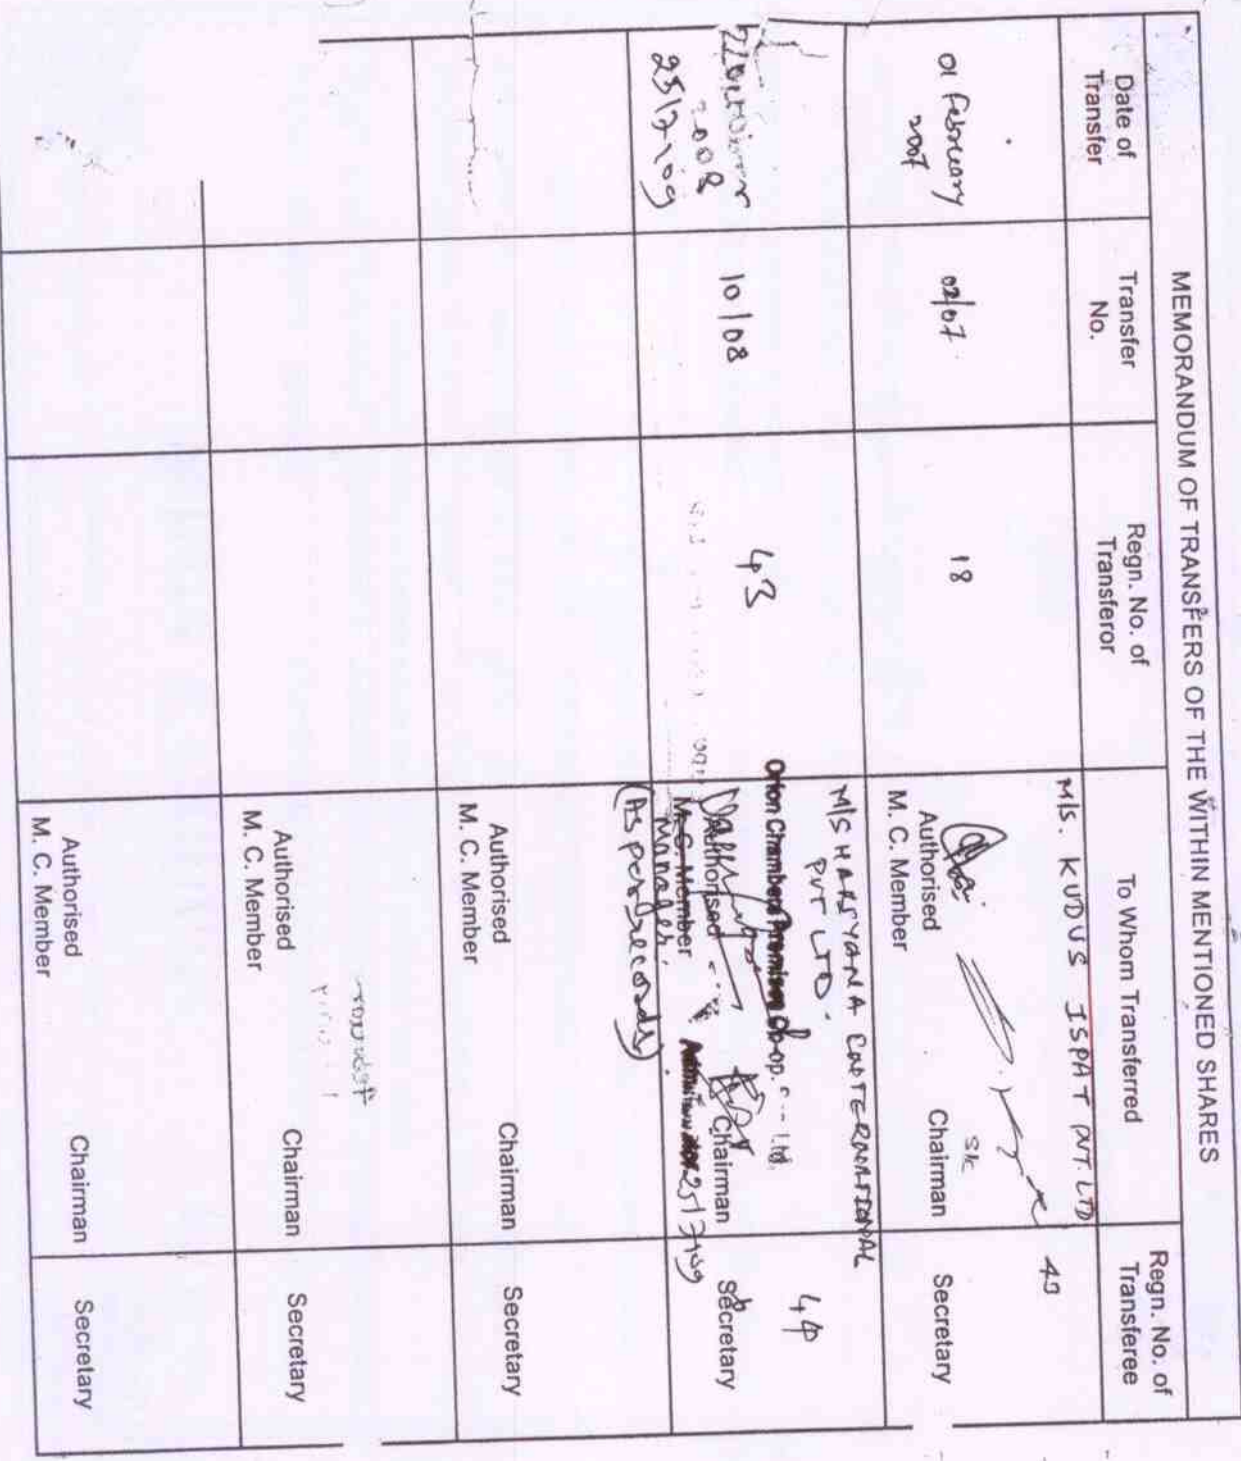 MEMORANDUM OF TRANSFERS OF THE WITHIN MENTIONED SHARES
Date of Transfer
Transfer No.
Regn. No. of Transferor
To Whom Transferred
Regn. No. of Transferee
01 February 2007
02/07
18
M/s. KUDUS ISPAT PVT. LTD
43
Authorised M. C. Member
Chairman
Secretary
2008
25/7/09
10/08
43
M/S HARSYANA
PVT LTD.
Orion Chambers Premises Co-op. Ltd.
Authorised M. C. Member
Manager.
(As per records)
Chairman
25/7/09
Secretary
Authorised M. C. Member
Chairman
Secretary
Authorised M. C. Member
Chairman
Secretary
Authorised M. C. Member
Chairman
Secretary